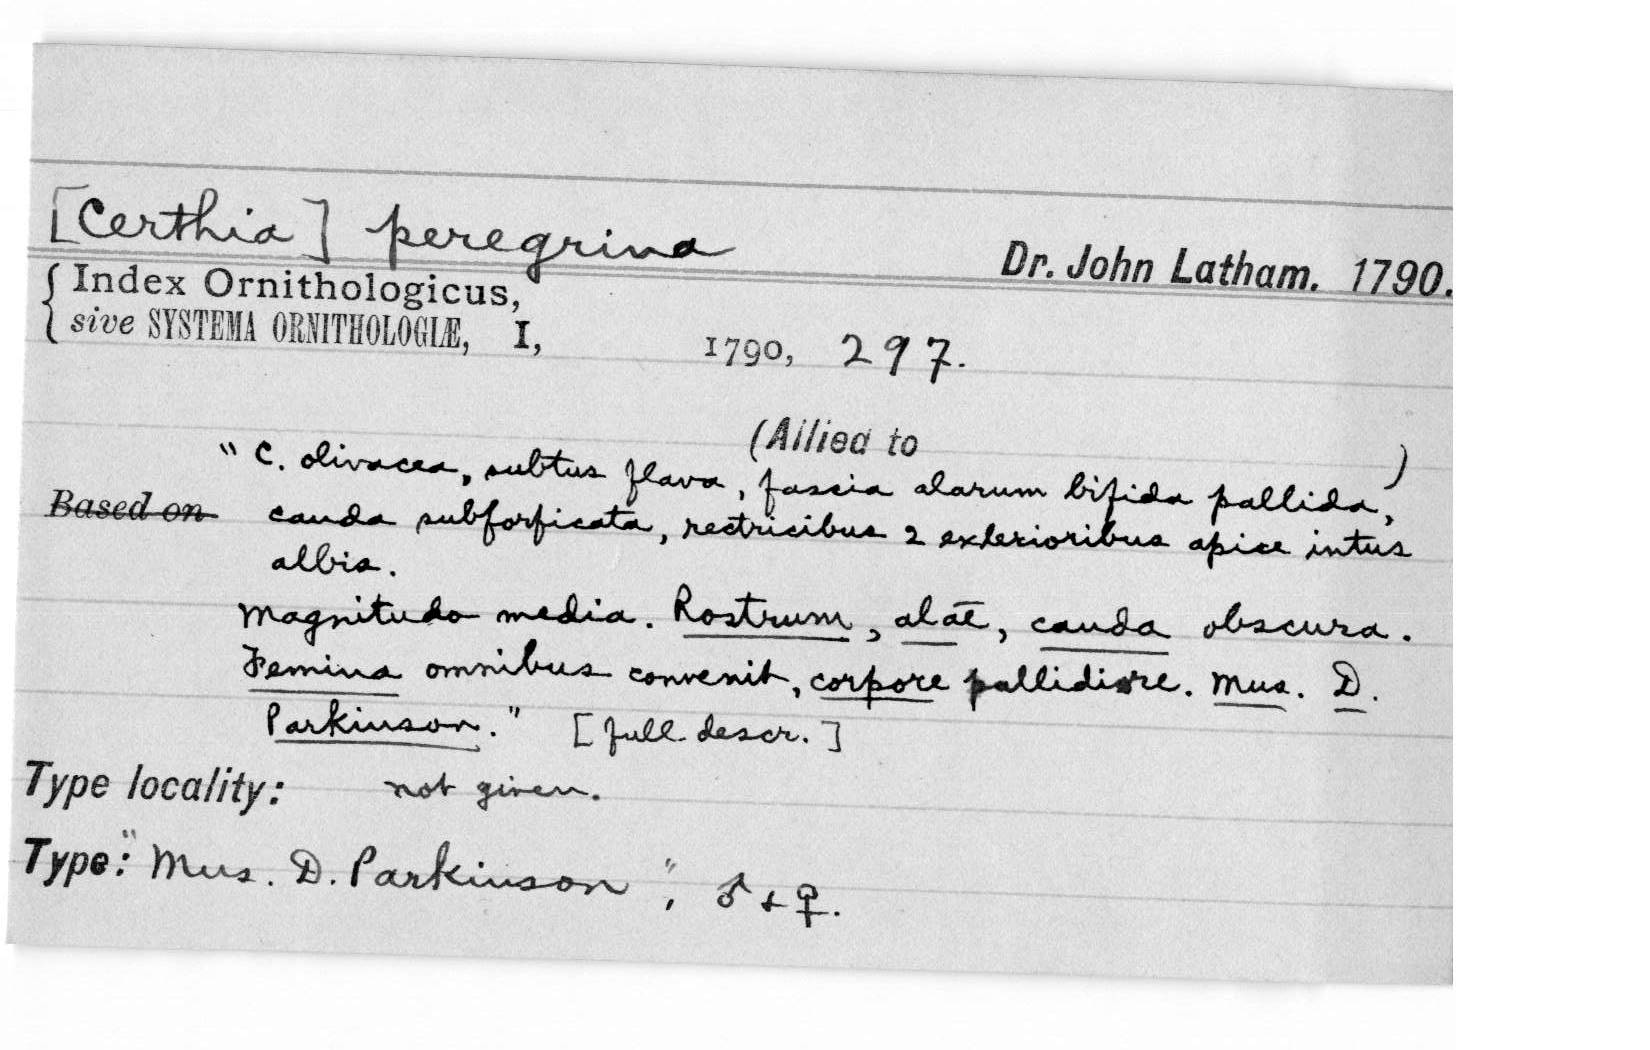 [Certhia] peregrina
Dr. John Latham. 1790.
{ Index Ornithologicus,
sive SYSTEMA ORNITHOLOGIÆ, I, 1790, 297.
(Allied to )
" C. olivacea, subtus flava, fascia alarum bifida pallida,
Based on cauda subforficata, rectricibus 2 exterioribus apice intus
albis.
Magnitudo media. Rostrum, alae, cauda obscura.
Femina omnibus convenit, corpore pallidiore. Mus. D.
Parkinson." [full descr.]
Type locality: not given.
Type: "Mus. D. Parkinson", ♂ + ♀.